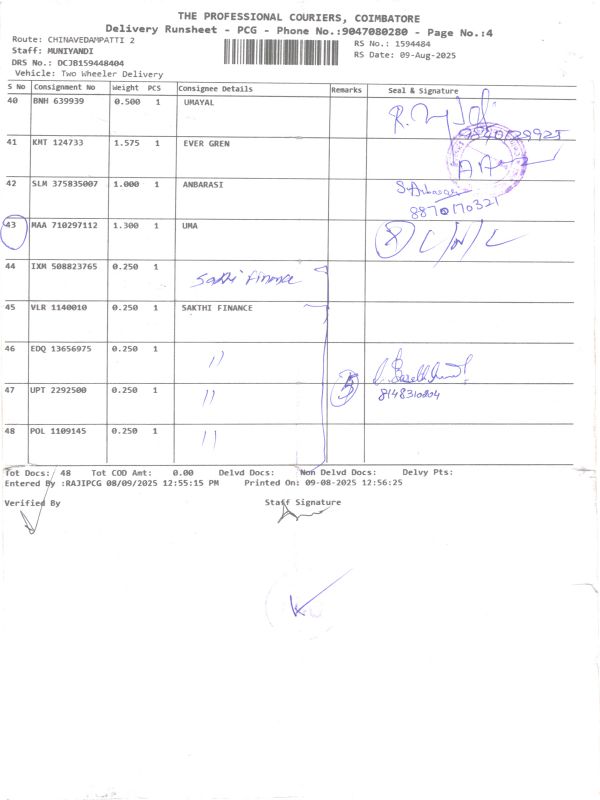 THE PROFESSIONAL COURIERS, COIMBATORE
Delivery Runsheet - PCG - Phone No.:9047080280 - Page No.:4
Route: CHINAVEDAMPATTI 2
RS No.: 1594484
Staff: MUNIYANDI
RS Date: 09-Aug-2025
DRS No.: DCJB159448404
Vehicle: Two Wheeler Delivery
S No Consignment No Weight PCS Consignee Details Remarks Seal & Signature
40 BNH 639939 0.500 1 UMAYAL
41 KMT 124733 1.575 1 EVER GREN
42 SLM 375835007 1.000 1 ANBARASI
8870170321
43 MAA 710297112 1.300 1 UMA
44 IXM 508823765 0.250 1 Sakthi Finance
45 VLR 1140010 0.250 1 SAKTHI FINANCE
46 EDQ 13656975 0.250 1 "
47 UPT 2292500 0.250 1 " 5
48 POL 1109145 0.250 1 "
Tot Docs: 48 Tot COD Amt: 0.00 Delvd Docs: Non Delvd Docs: Delvy Pts:
Entered By :RAJIPCG 08/09/2025 12:55:15 PM Printed On: 09-08-2025 12:56:25
Verified By Staff Signature